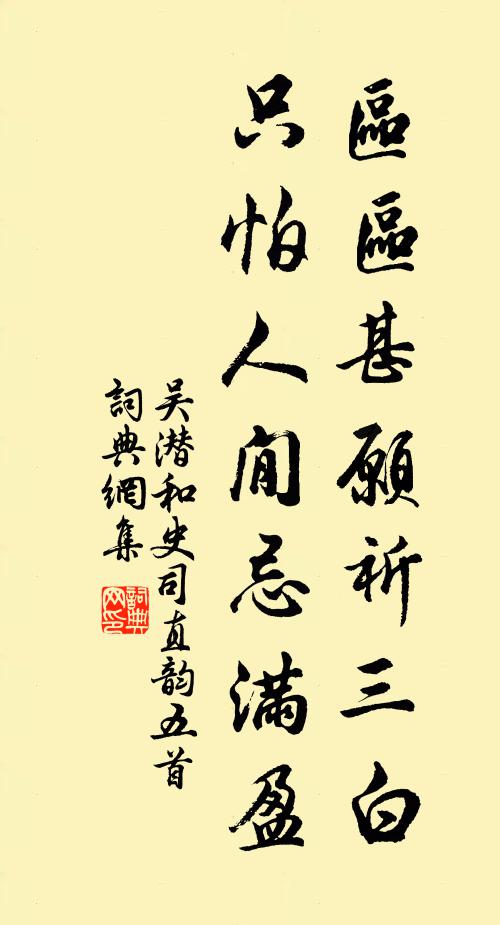 區區甚願祈三白
只怕人間忌滿盈
吴潜和史司直韵五首
詞典網集
詞典网印